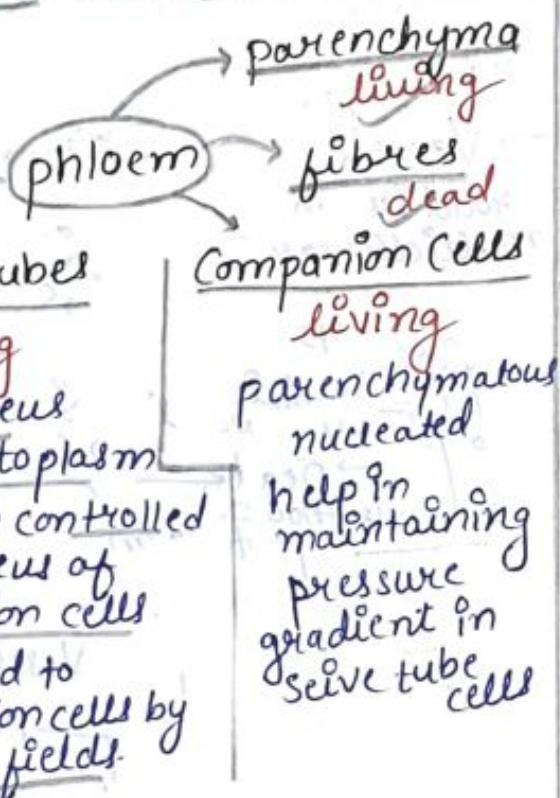 parenchyma
living
phloem
fibres
dead
ubes
g
eus
toplasm
controlled
eus of
on cells
d to
on cells by
fields.
Companion Cells
living
parenchymatous
nucleated
help in
maintaining
pressure
gradient in
seive tube
cells